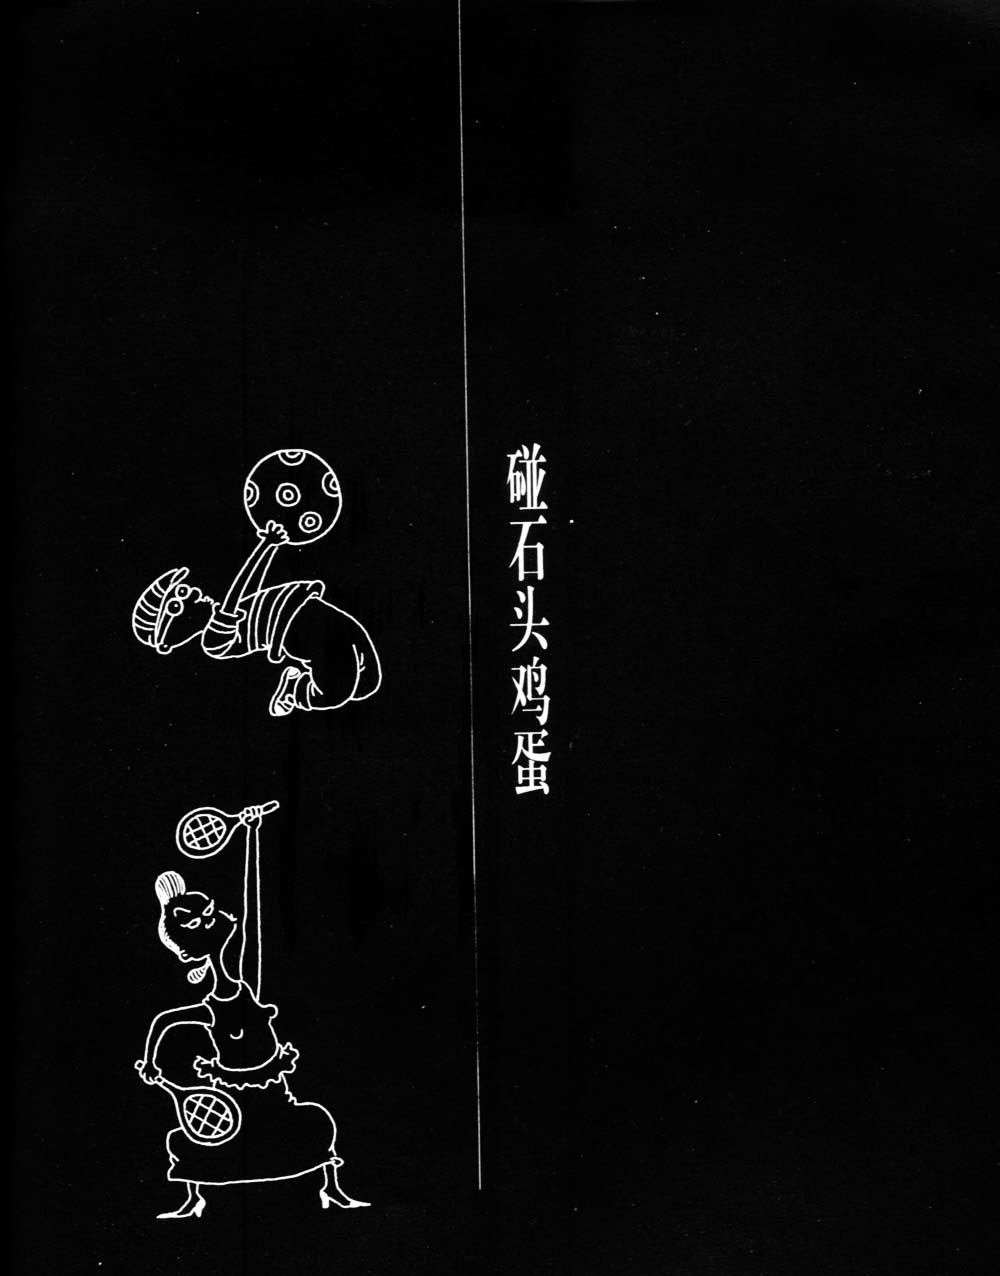 碰石头鸡蛋